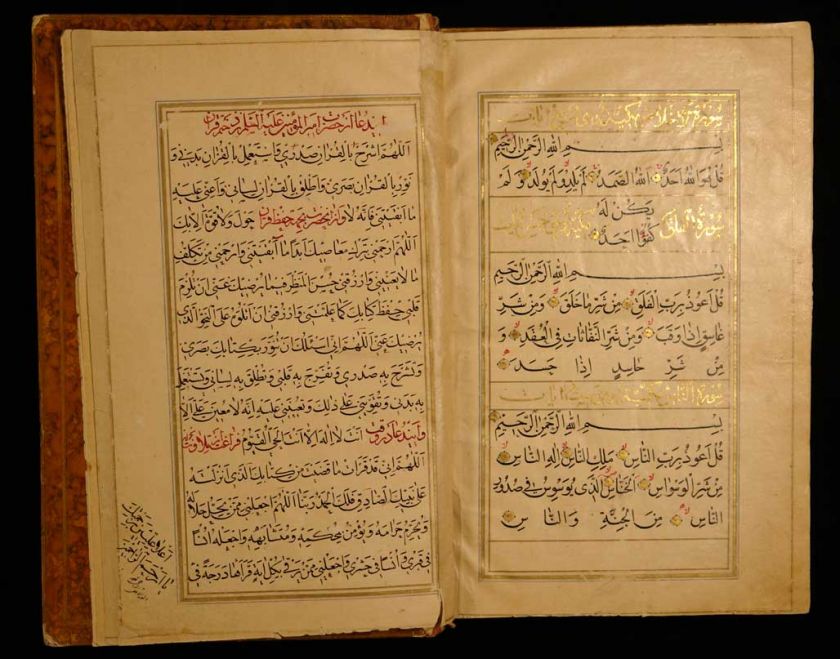 بسم الله الرحمن الرحيم
قل هو الله احد الله الصمد لم يلد ولم يولد ولم
يكن له
كفوا احد
بسم الله الرحمن الرحيم
قل اعوذ برب الفلق من شر ما خلق ومن شر
غاسق اذا وقب ومن شر النفاثات في العقد و
من شر حاسد اذا حسد
بسم الله الرحمن الرحيم
قل اعوذ برب الناس ملك الناس اله الناس
من شر الوسواس الخناس الذي يوسوس في صدور
الناس من الجنة والناس
امير المؤمنين عليه السلم
اللهم اشرح بالقران صدري واستعمل بالقران بدني و
نور بالقران بصري واطلق بالقران لساني واعني عليه
ما ابقيتني فانه لا حول ولا قوة الا بك
اللهم ارحمني بترك معاصيك ابدا ما ابقيتني وارحمني من تكلف
ما لا يعنيني وارزقني حسن المنظر فيما يرضيك عني ان تلزم
قلبي حفظ كتابك كما علمتني وارزقني ان اتلوه على النحو الذي
يرضيك عني اللهم اني اسئلك ان تنور بكتابك بصري
وتشرح به صدري وتفرج به قلبي وتطلق به لساني وتستعمل
به بدني وتقويني على ذلك وتعينني عليه انه لا معين عليه الا
انت لا اله الا انت الحي القيوم
اللهم اني قد قرات ما قضيت من كتابك الذي انزلته
على نبيك الصادق فلك الحمد ربنا اللهم اجعلني ممن يحل حلاله
ويحرم حرامه ويؤمن بمحكمه ومتشابهه واجعله انسا
في قبري وانسا في حشري واجعلني ممن ترقيه بكل اية قراها درجة في